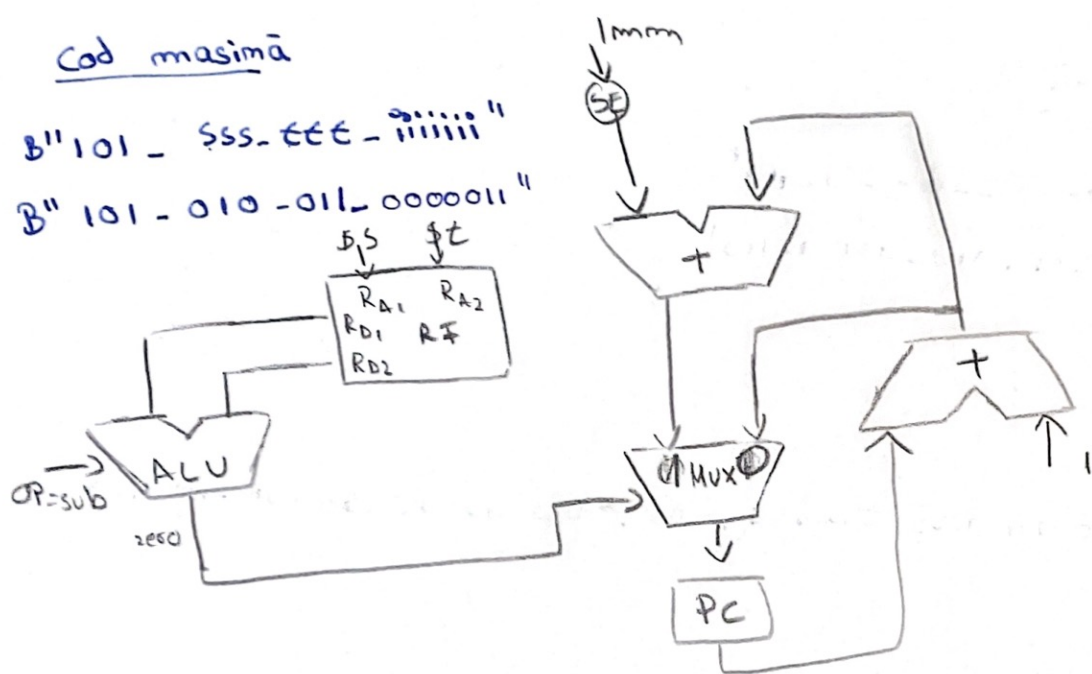 Cod masimã
B"101 _ sss_ ttt _ iiiiiii"
B" 101 _ 010 _ 011_ 0000011"
Imm
SE
+
$s $t
RA1 RA2
RD1 RF
RD2
+
1
ALU
OP=sub
zero
1 MUX 0
PC